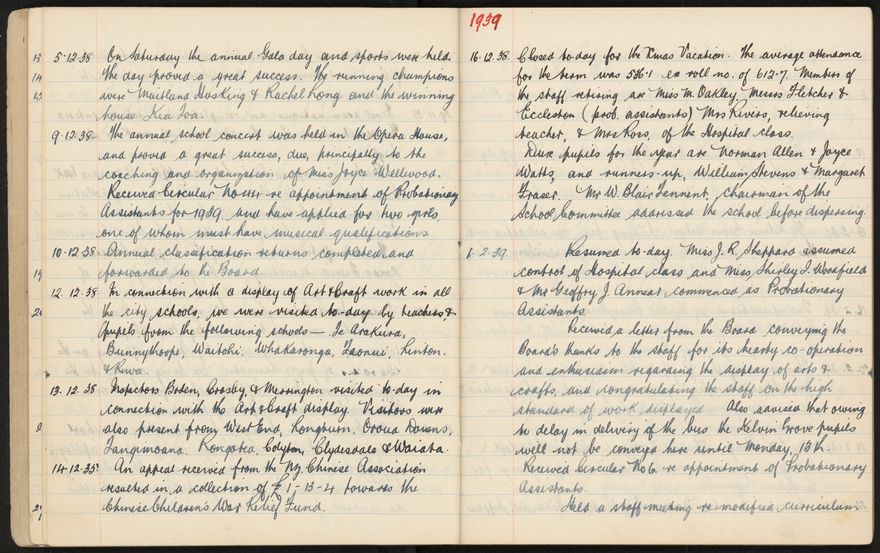 13 5·12·38 On Saturday the annual Gala day and sports were held.
14 The day proved a great success. The running champions
15 were Maitland Hosking & Rachel Kong and the winning
house Kia Toa.
9·12·38· The annual school concert was held in the Opera House,
and proved a great success, due, principally to the
coaching and organization of Miss Joyce Wellwood.
Received Circular re appointment of Probationary
Assistants for 1939 and have applied for two girls
one of whom must have musical qualifications
10·12·38 Annual classification returns completed and
19 forwarded to the Board
12·12·38· In connection with a display of Art & Craft work in all
20 the city schools, we were visited to-day by teachers &
pupils from the following schools — Te Arakura,
Bunnythorpe, Waitohi, Whakaronga, Taonui, Linton.
& Kiwa.
13·12·38 Inspectors Boden, Crosby, & Merrington visited to-day in
connection with the Art & Craft display. Visitors were
also present from West End, Longburn, Oroua Downs,
Tangimoana, Rongotea, Colyton, Clydesdale & Waiata.
14·12·38· An appeal received from the NZ Chinese Association
resulted in a collection of £1-13-4 towards the
Chinese Children's War Relief Fund.
1939
16·12·38 Closed to-day for the Xmas Vacation. The average attendance
for the term was 576·1 ex roll no. of 612·7. Members of
the staff retiring are Miss M. Oakley, Messrs Fletcher &
Eccleston (prob. assistants) Mrs Rivers, relieving
teacher, & Mrs Ross, of the Hospital Class.
Dux pupils for the year are Norman Allen & Joyce
Watts, and runners-up, William Stevens & Margaret
Fraser. Mr W. Blair Tennent, chairman of the
School Committee addressed the school before dispersing.
1·2·39. Resumed to-day. Miss J. R. Sheppard assumed
control of Hospital class and Miss Shirley I. Woodfield
& Mr Geoffry J. Annear commenced as Probationary
Assistants.
Received a letter from the Board conveying the
Board's thanks to the staff for its hearty co-operation
and enthusiasm regarding the display of arts &
crafts, and congratulating the staff on the high
standard of work displayed. Also advised that owing
to delay in delivery of the bus the Kelvin Grove pupils
will not be conveyed here until Monday, 13th.
Received Circular No 6 re appointment of Probationary
Assistants.
Held a staff meeting re modified curriculum